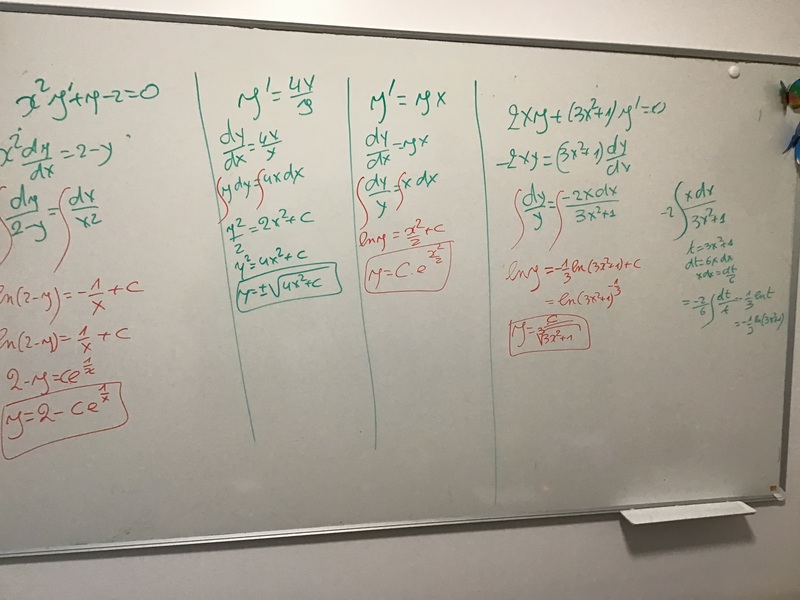 x²y'+y-2=0
x² dy/dx = 2-y
∫ dy/2-y = ∫ dx/x2
ln(2-y) = -1/x + C
ln(2-y) = 1/x + C
2-y = ce^1/x
y = 2 - Ce^1/x
y' = 4x/y
dy/dx = 4x/y
∫ydy = ∫4xdx
y²/2 = 2x²+C
y² = 4x²+C
y = ±√4x²+C
y' = yx
dy/dx = yx
∫ dy/y = ∫ x dx
ln y = x²/2 + C
y = C.e^x²/2
2xy+(3x²+1)y'=0
-2xy = (3x²+1) dy/dx
∫ dy/y = ∫ -2xdx/3x²+1
ln y = -1/3 ln(3x²+1)+C
= ln(3x²+1)^-1/3
y = C/∛3x²+1
-2 ∫ xdx/3x²+1
t = 3x²+1
dt = 6xdx
xdx = dt/6
= -2/6 ∫ dt/t = -1/3 ln t
= -1/3 ln(3x²+1)